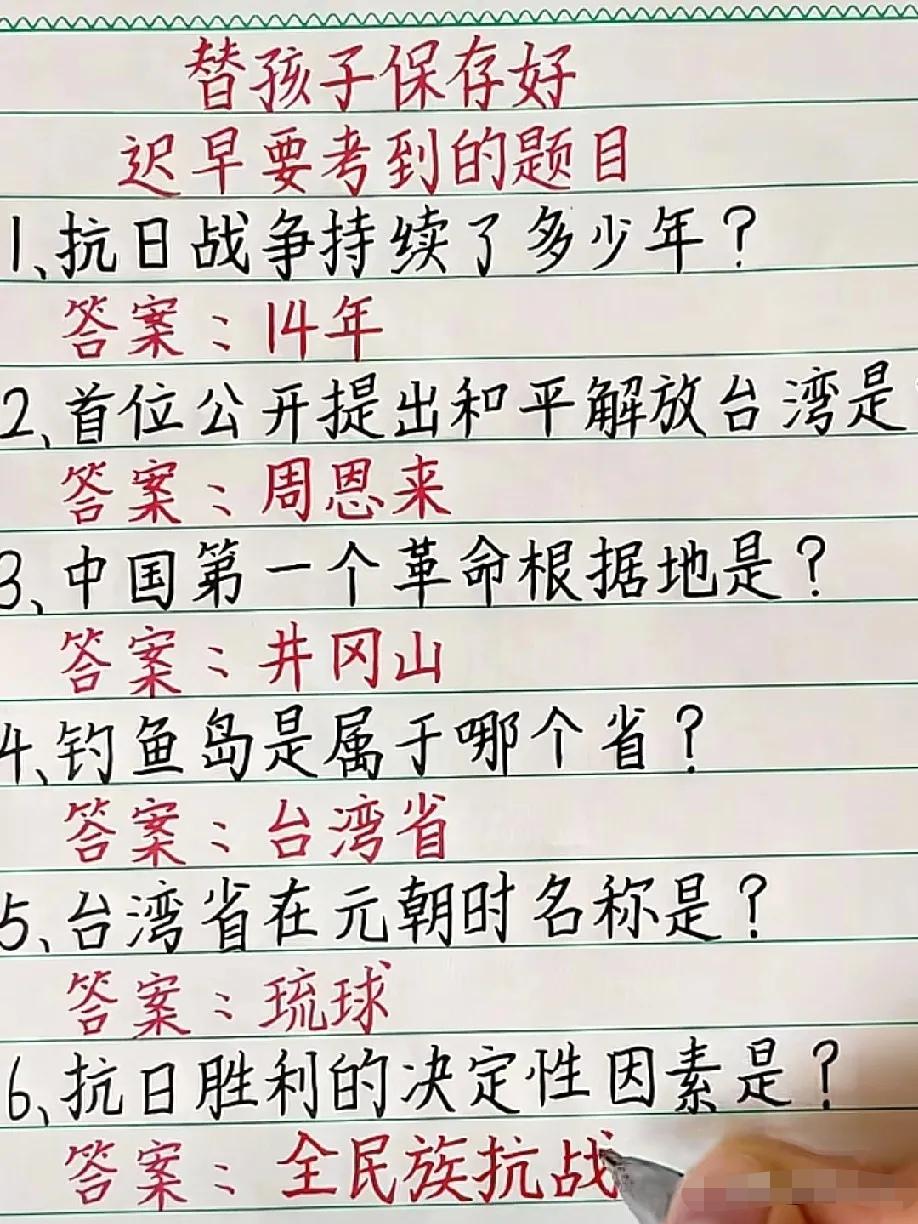 替孩子保存好
迟早要考到的题目
1、抗日战争持续了多少年？
答案：14年
2、首位公开提出和平解放台湾是
答案：周恩来
3、中国第一个革命根据地是？
答案：井冈山
4、钓鱼岛是属于哪个省？
答案：台湾省
5、台湾省在元朝时名称是？
答案：琉球
6、抗日胜利的决定性因素是？
答案：全民族抗战